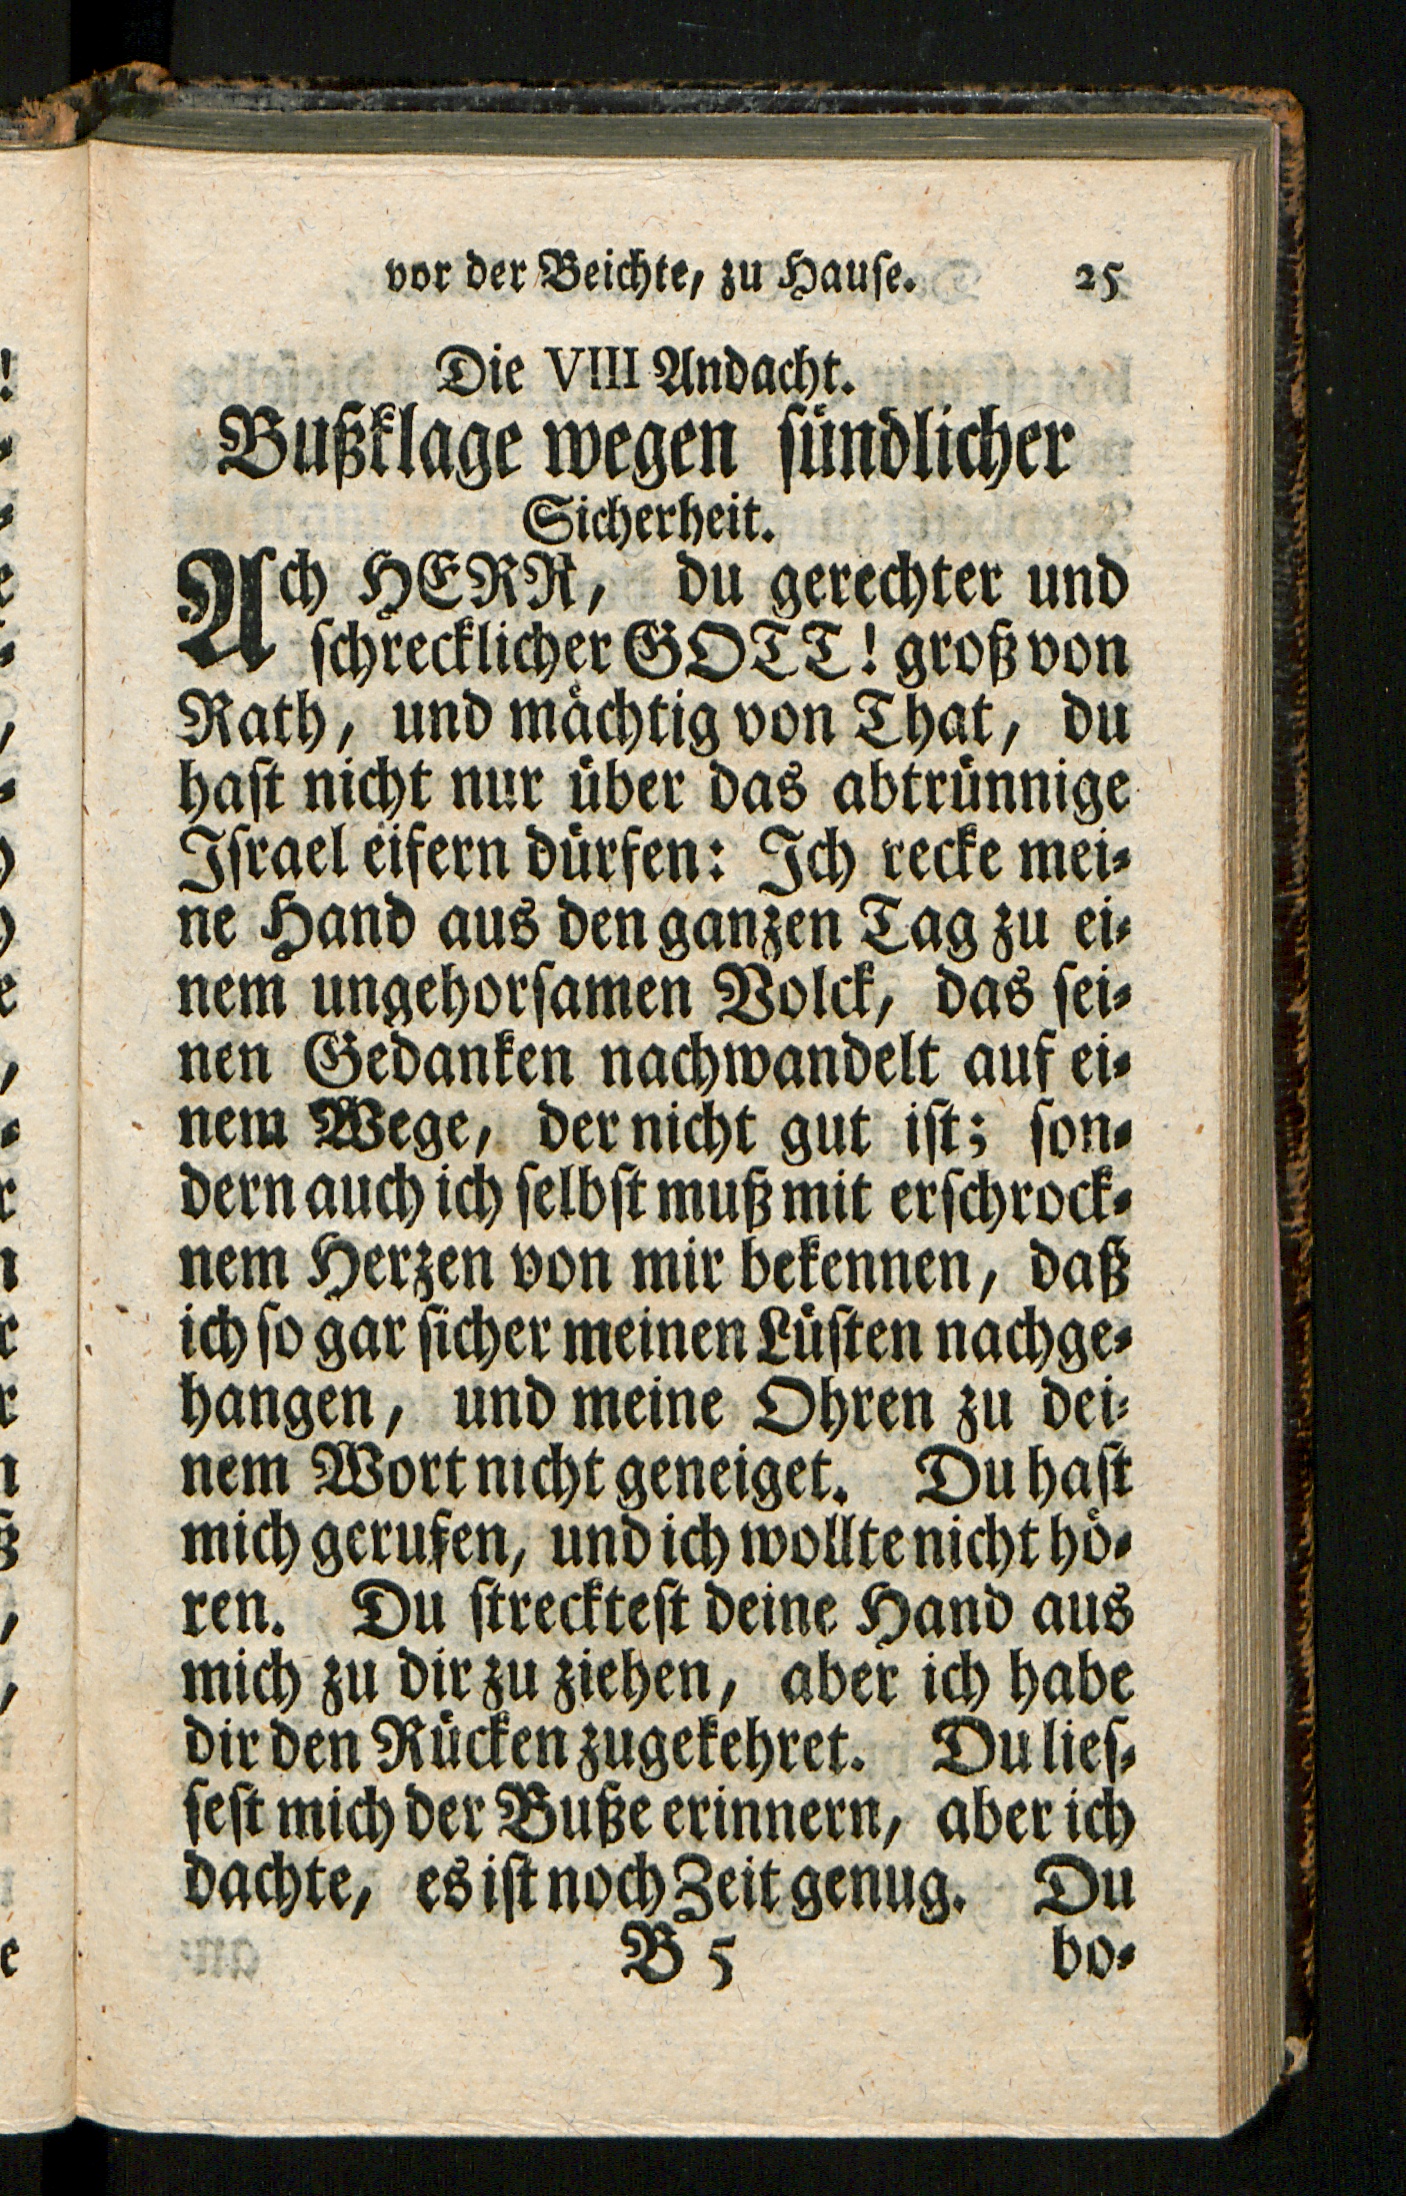 vor der Beichte, zu Hause. 25
Die VIII Andacht.
Bußklage wegen sündlicher
Sicherheit.
Ach HERR, du gerechter und
schrecklicher GOTT! groß von
Rath, und mächtig von That, du
hast nicht nur über das abtrünnige
Israel eifern dürfen: Ich recke mei-
ne Hand aus den ganzen Tag zu ei-
nem ungehorsamen Volck, das sei-
nen Gedanken nachwandelt auf ei-
nem Wege, der nicht gut ist; son-
dern auch ich selbst muß mit erschrock-
nem Herzen von mir bekennen, daß
ich so gar sicher meinen Lüsten nachge-
hangen, und meine Ohren zu dei-
nem Wort nicht geneiget. Du hast
mich gerufen, und ich wollte nicht hö-
ren. Du strecktest deine Hand aus
mich zu dir zu ziehen, aber ich habe
dir den Rücken zugekehret. Du lies-
sest mich der Buße erinnern, aber ich
dachte, es ist noch Zeit genug. Du
B 5 bo-